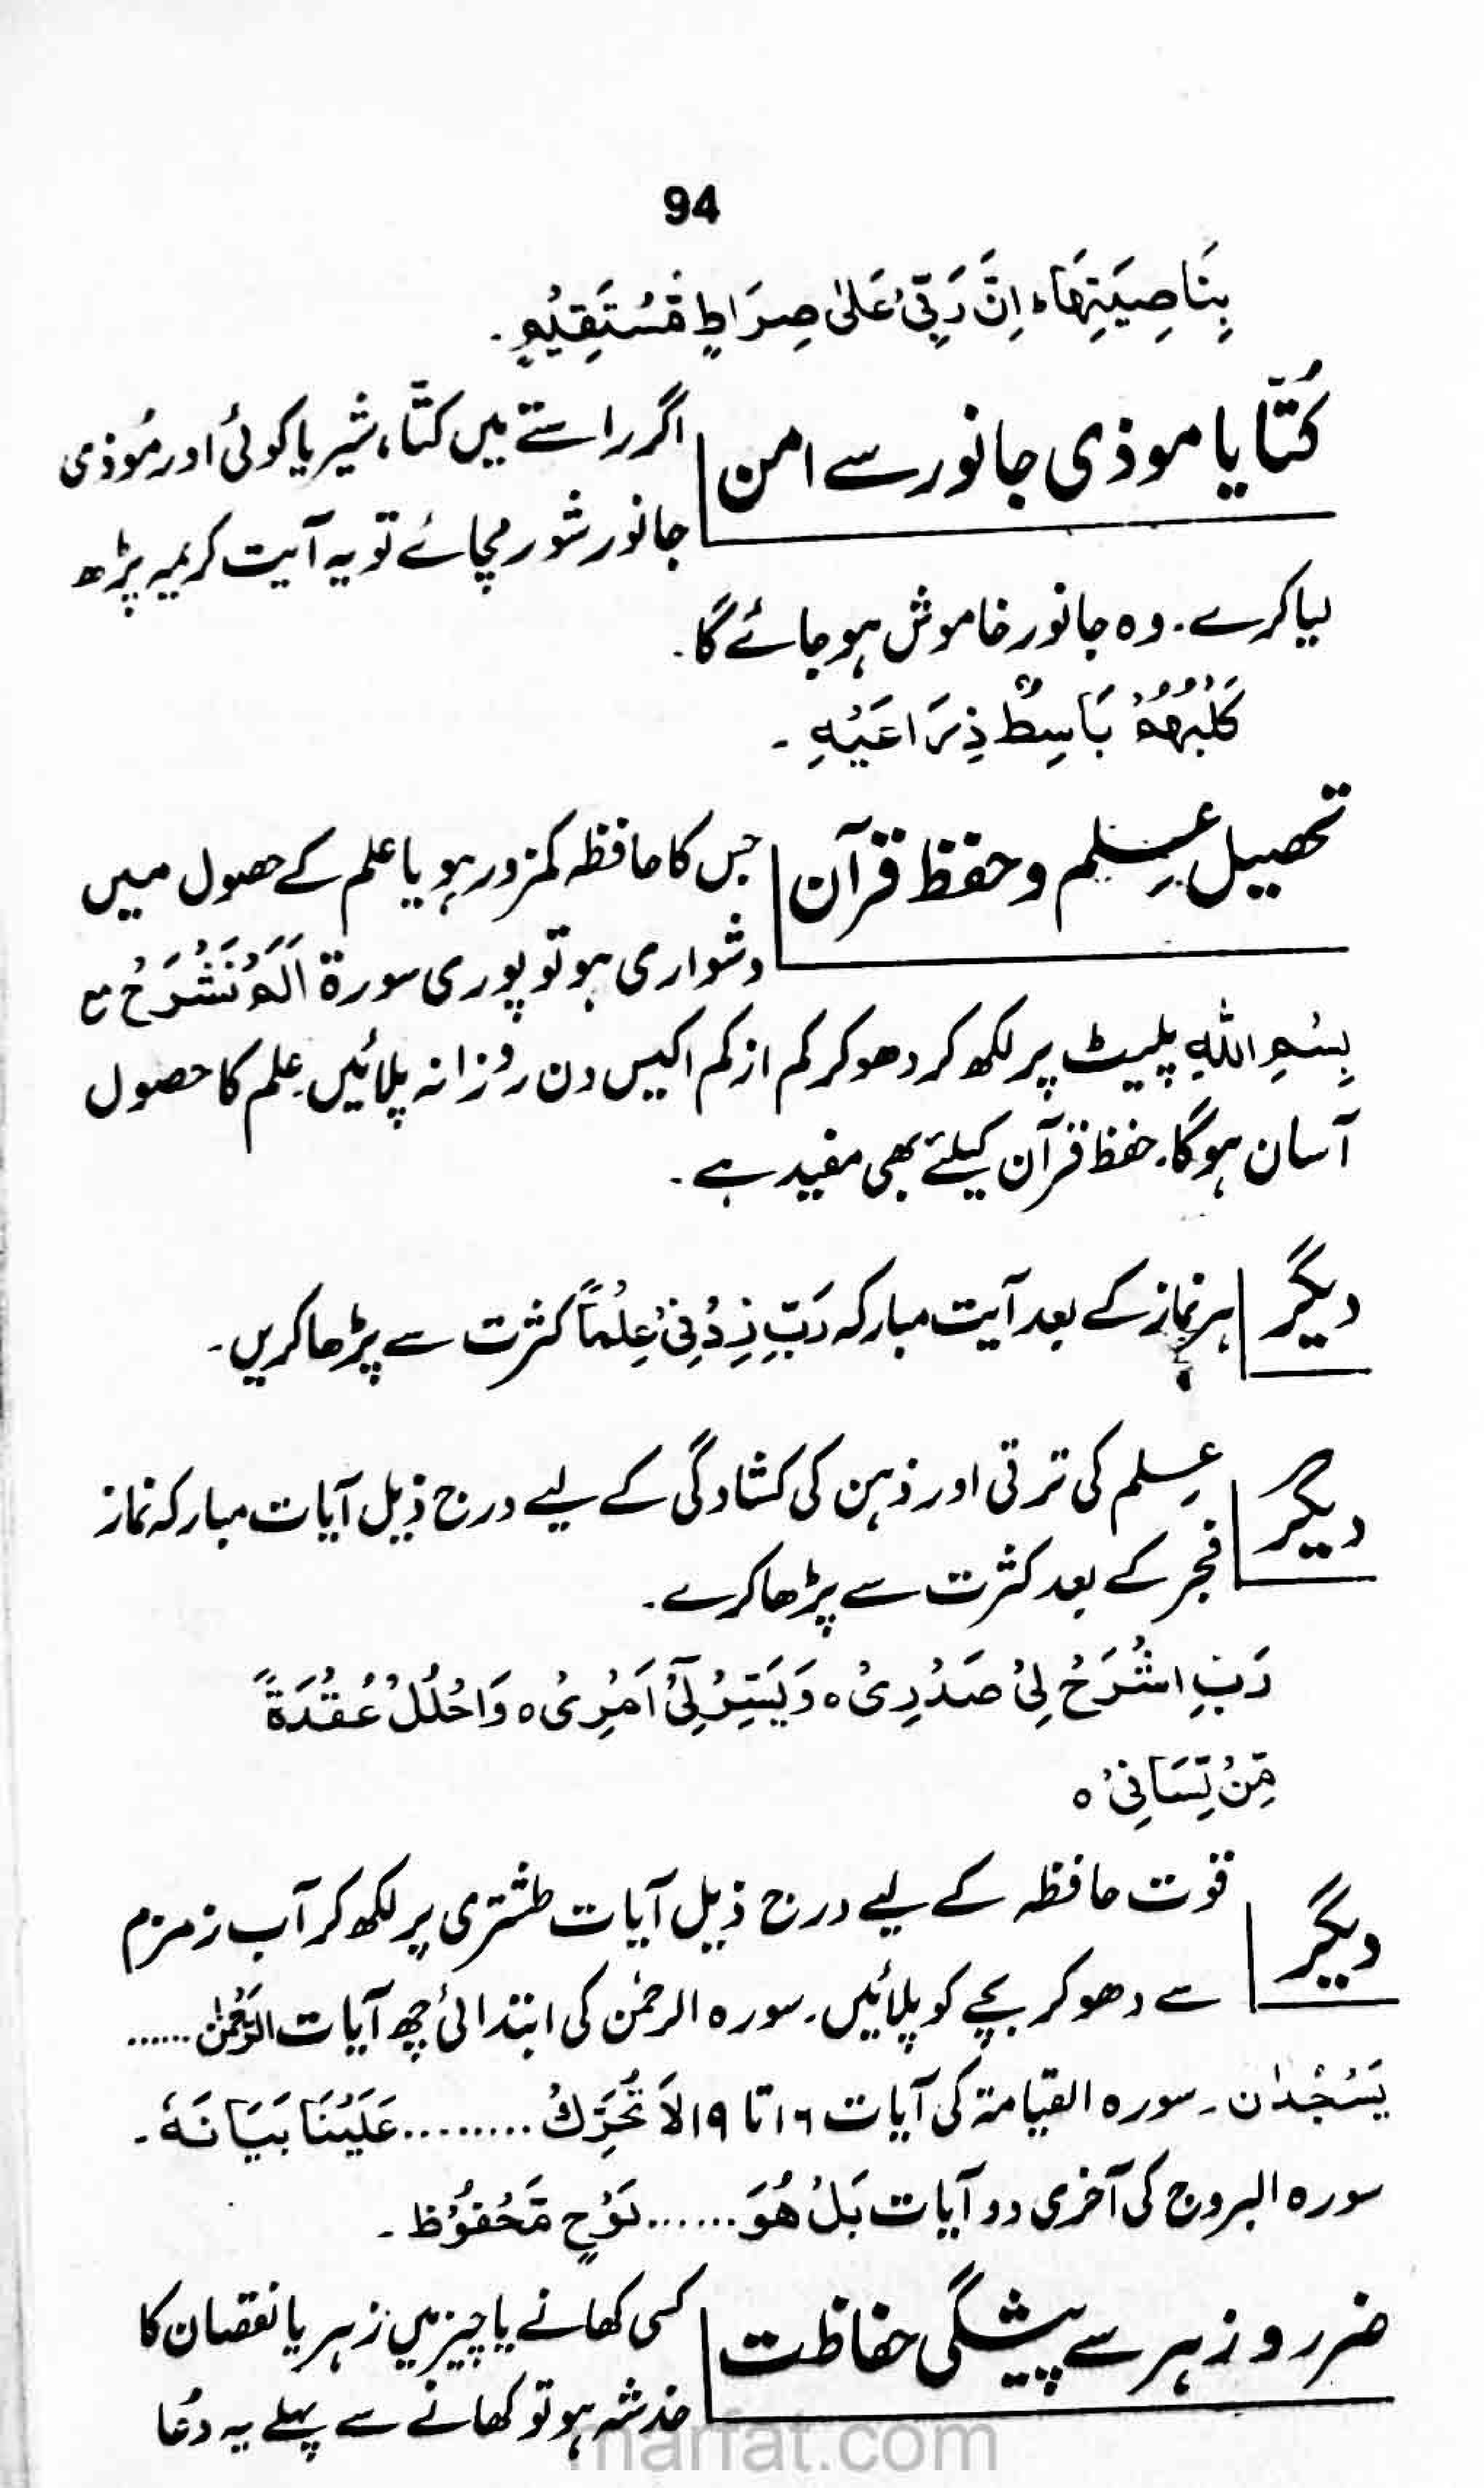 94
بِنَاصِيَتِهَا ؕ اِنَّ رَبِّیْ عَلٰی صِرَاطٍ مُّسْتَقِیْمٍ۔
کُتّا یا موذی جانور سے امن
اگر راستے میں کتّا، شیر یا کوئی اور مُوذی
جانور شور مچائے تو یہ آیت کریمہ پڑھ
لیا کرے۔ وہ جانور خاموش ہو جائے گا۔
کَلْبُھُمْ بَاسِطٌ ذِرَاعَیْہِ ۔
تحصیلِ عِلم و حفظ قرآن
جس کا حافظہ کمزور ہو یا علم کے حصول میں
دشواری ہو تو پوری سورۃ اَلَمْ نَشْرَحْ مع
بِسْمِ اللّٰہِ پلیٹ پر لکھ کر دھو کر کم از کم اکیس دن روزانہ پلائیں۔ علم کا حصول
آسان ہوگا۔ حفظ قرآن کیلئے بھی مفید ہے۔
دیگر
ہر نماز کے بعد آیت مبارکہ رَبِّ زِدْنِیْ عِلْمًا کثرت سے پڑھا کریں۔
دیگر
عِلم کی ترقی اور ذہن کی کشادگی کے لیے درج ذیل آیات مبارکہ نماز
فجر کے بعد کثرت سے پڑھا کرے۔
رَبِّ اشْرَحْ لِیْ صَدْرِیْ ہ وَیَسِّرْ لِیْٓ اَمْرِیْ ہ وَاحْلُلْ عُقْدَۃً
مِّنْ لِّسَانِیْ ہ
دیگر
قوت حافظہ کے لیے درج ذیل آیات طشتری پر لکھ کر آب زمزم
سے دھو کر بچے کو پلائیں۔ سورہ الرحمٰن کی ابتدائی چھ آیات الرَّحْمٰن ......
یَسْجُدٰن۔ سورہ القیامۃ کی آیات ۱۶ تا ۱۹ لَا تُحَرِّکْ ......... عَلَیْنَا بَیَانَہٗ۔
سورہ البروج کی آخری دو آیات بَلْ ھُوَ ...... لَوْحٍ مَّحْفُوْظ۔
ضرر و زہر سے پیشگی حفاظت
کسی کھانے یا چیز میں زہر یا نقصان کا
خدشہ ہو تو کھانے سے پہلے یہ دُعا
marfat.com